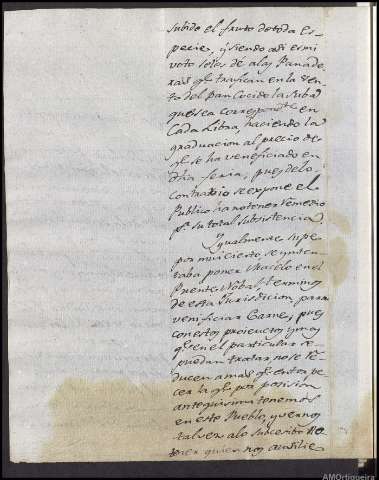 subido el fruto detoda es
pecie, y siendo asi es mi
voto seles dé alas Panade
ras qe. trafican en la ven
ta del Pan Cocido la subad
que sea correspondte. en
Cada Libra, haciendo la
graduacion al precio de
qe. se ha veneficiado en
dha feria, pues delo
contrario se expone el
Publico ha no tener remedio
pa. su total subsistencia
Ygualmente supe
por mui cierto, se ynten
taba poner en el
Puente terminos
de esta Jurisdicion, para
venificiar Carne, pues
con estos proiectos y mas
qe. en el particular se
puedan tratar, no se re
ducen a mas qe. entorpe
cer la posision
antiquisima tenemos
en este Pueblo, y vernos
talvez alo sucesibo
tener quien nos auxilie
AMOrtigueira